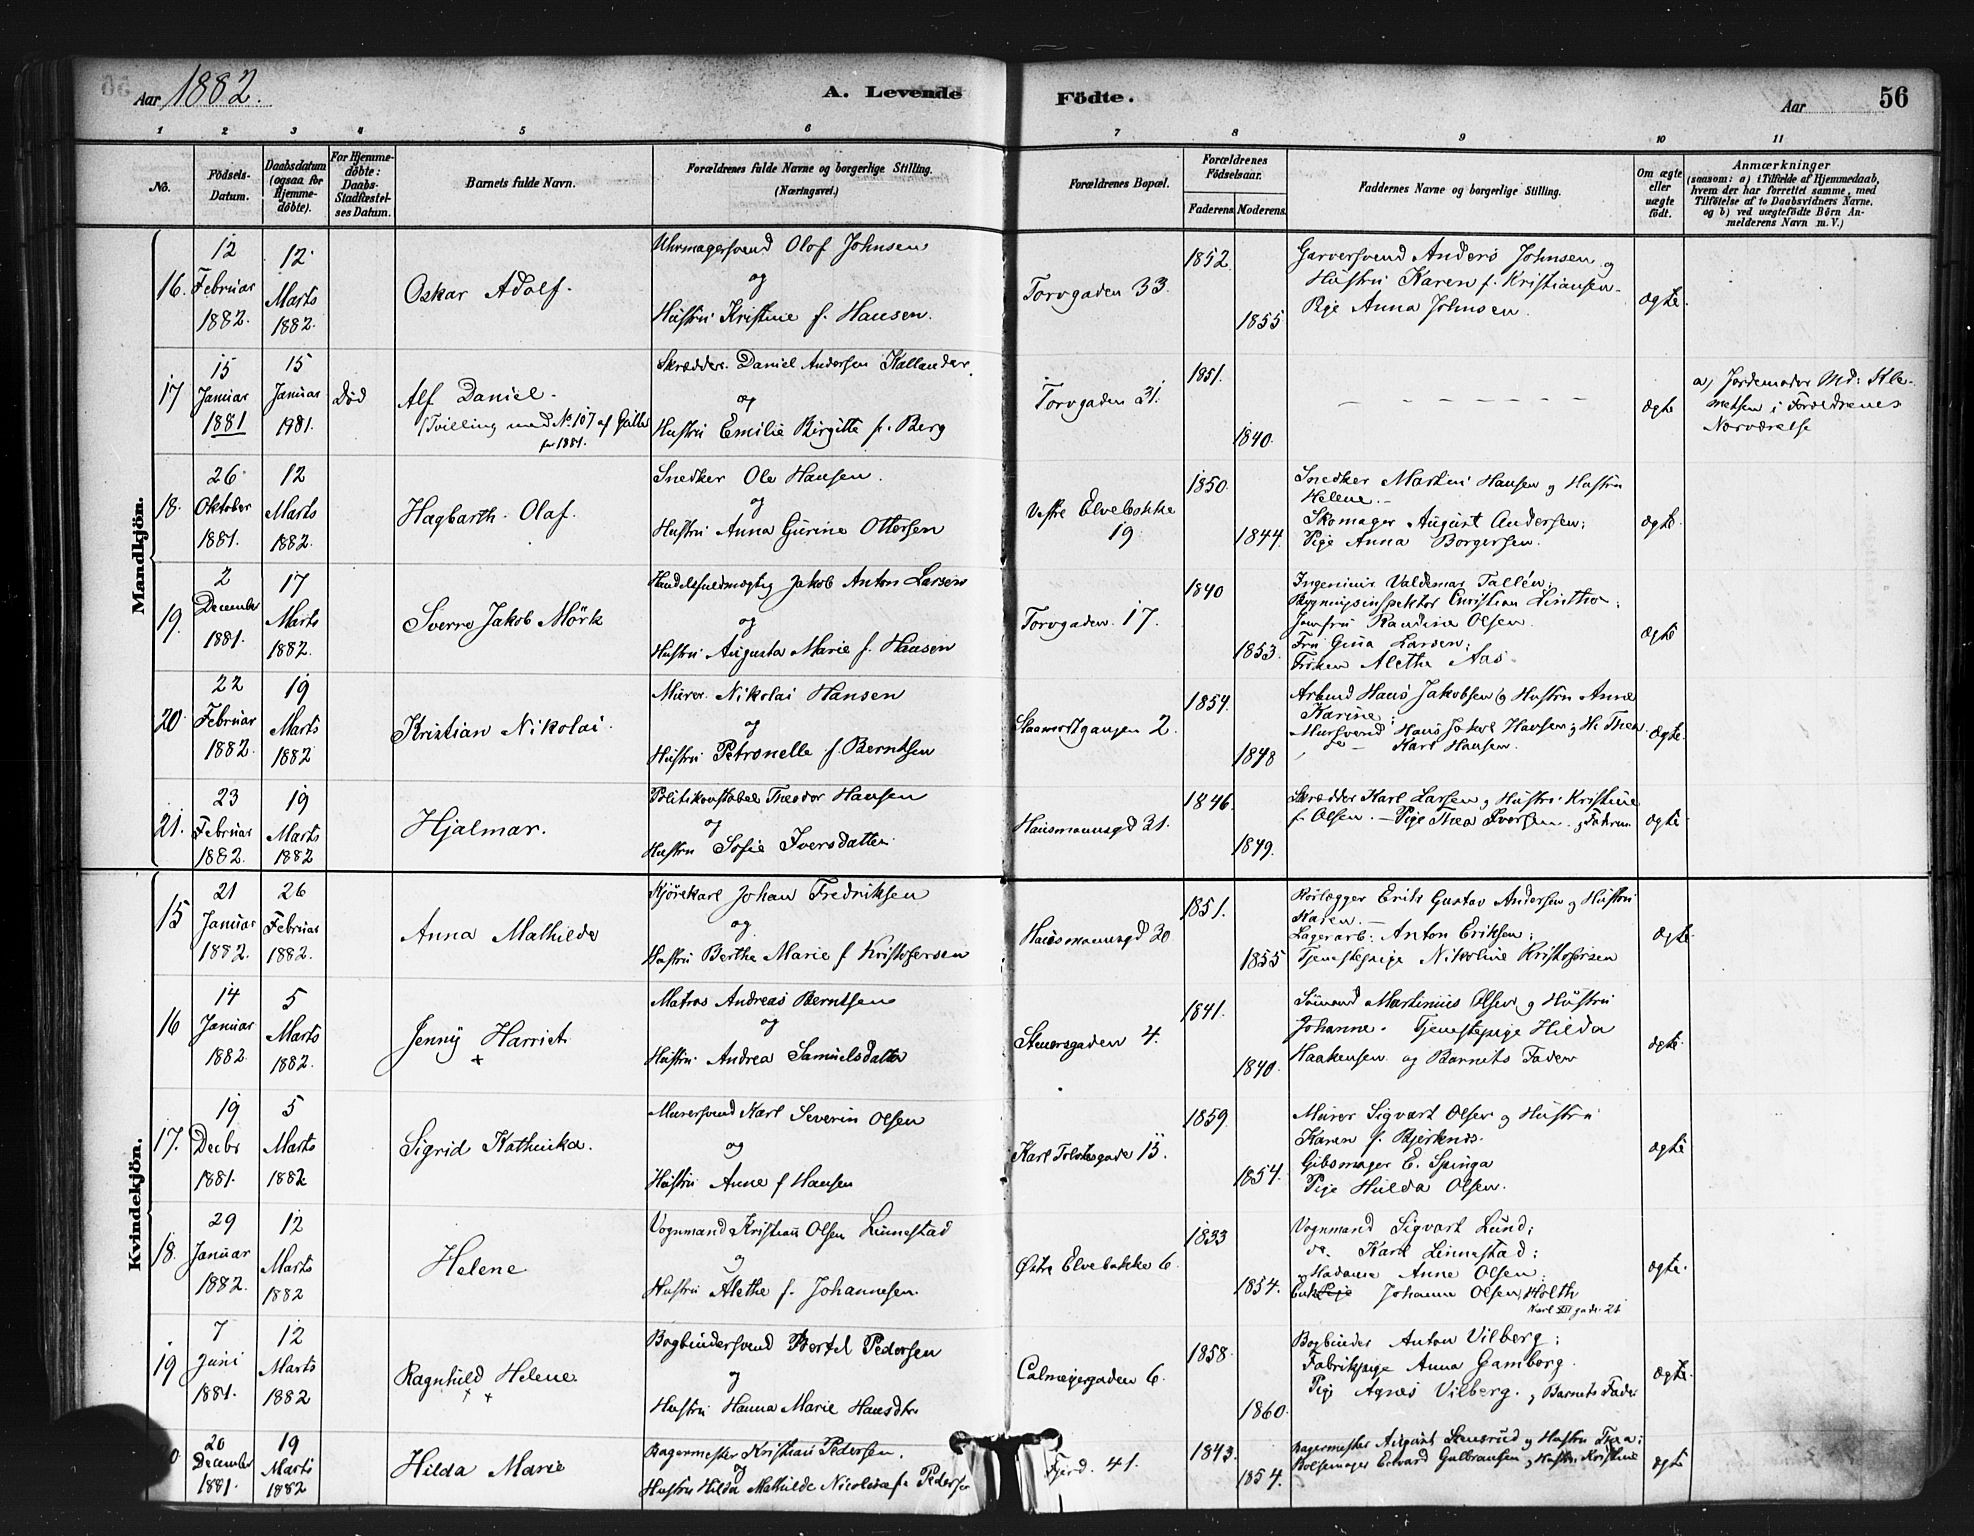 Aar 1882.
A. Levende Födte.
Aar
56
1 2 3 4 5 6 7 8 9 10 11
No.
Födsels-Datum.
Daabsdatum (ogsaa for Hjemme-döbte).
For Hjemme-döbte: Daabs-Stadfæstel-ses Datum.
Barnets fulde Navn.
Forældrenes fulde Navne og borgerlige Stilling.
(Næringsvei.)
Forældrenes Bopæl.
Forældrenes Födselsaar.
Faderens. Moderens.
Faddernes Navne og borgerlige Stilling.
Om ægte eller uægte födt.
Anmærkninger
(saasom: a) i Tilfælde af Hjemmedaab,
hvem der har forrettet samme, med
Tilföielse af to Daabsvidners Navne,
og b) ved uægtefödte Börn An-
melderens Navn m. V.)
Mandkjön.
16. 12 Februar 1882. 12 Marts 1882.
Oskar Adolf.
Uhrmagersvend Olof Johnsen
og
Hustru Kristine f. Hansen.
Torvgaden 33.
1852
1855
Garversvend Anders Johnsen og
Hustru Karen f. Kristiansen
Pige Anna Johnsen.
ægte
17 15 Januar 1881 15 Januar 1981. Död
Alf Daniel.
(Tvilling med No. 107 af Gutter
for 1881.
Skrædder Daniel Andersen Kallander
og
Hustru Emilie Birgitte f. Berg
Torvgaden 31.
1851.
1840.
ægte
a) Jordemoder Md: Kle-
metsen i Forældrenes
Nærværelse
18. 26 Oktober 1881. 12 Marts 1882.
Hagbarth Olaf.
Snedker Ole Hansen.
og
Hustru Anna Gurine Ottersen
Vestre Elvebakke
19
1850.
1844.
Snedker Martin Hansen og Hustru
Helene.
Skomager August Andersen;
Pige Anna Borgersen.
ægte
19. 2 December 1881. 17 Marts 1882.
Sverre Jakob Mörk
Handelsfuldmægtig Jakob Anton Larsen
og
Hustru Augusta Marie f. Hansen
Torvgaden 17.
1840
1853.
Ingeniör Valdemar Tallén;
Bygningsinspektor Christian Linthoe;
Jomfru Randine Olsen.
Fru Gina Larsen;
Fröken Aletha Aas.
ægte
20. 22 Februar 1882. 19 Marts 1882
Kristian Nikolai.
Murer Nikolai Hansen
og
Hustru Petronelle f. Berntsen
2.
1854.
1848
Arbmd Hans Jakobsen og Hustru Anne
Karine;
Mursvend Hans Jakob Hansen og H. Thea
do Karl Hansen.
Ægte.
21. 23 Februar 1882. 19 Marts 1882
Hjalmar.
Politikonstabel Theodor Hansen
og
Hustru Sofie Iversdatter
Hausmannsgd 31.
1846.
1849.
Skrædder Karl Larsen og Hustru Kristine
f. Olsen. — Pige Thea Iversen og Faderen
ægte
Kvindekjön.
15 21 Januar 1882. 26 Februar 1882.
Anna Mathilde
Kjörekarl Johan Fredriksen
og
Hustru Berthe Marie f Kristofersen
Hausmannsgd 30
1851.
1855
Rörlægger Erik Gustav Andersen og Hustru
Karen. —
Lagerarb: Anton Eriksen;
Tjenestepige Nikoline Kristofersen
ægte
16 14 Januar 1882 5 Marts 1882.
Jenny Harriet
+
Matros Andreas Berntsen
og
Hustru Andrea Samuelsdatter
Steenersgaden 4.
1841.
1840.
Sömand Martinius Olsen og Hustru
Johanne. Tjenestepige Hilda
Haakensen og Barnets Fader
ægte
17. 19 Decbr 1881. 5 Marts 1882
Sigrid Kathinka.
Murersvend Karl Severin Olsen
og
Hustru Anne f Hansen
15.
1859.
1854.
Murer Sigvart Olsen og Hustru
Karen f. Bjerknes.
Gibsmager E. Spinga
Pige Hulda Olsen.
ægte
18. 29 Januar 1882. 12 Marts 1882
Helene
Vognmand Kristian Olsen Linnestad
og
Hustru Alethe f. Johannesen.
Østre Elvebakke 6.
1833
1854.
Vognmand Sigvart Lund;
do. Karl Linnestad;
Madame Anne Olsen;
Enke Pige Johanne Olsen Holth
Karl XII gade 21
ægte.
19 7 Juni 1881. 12 Marts 1882
Ragnhild Helene
+ +
Bogbindersvend Bertel Pedersen
og
Hustru Hanna Marie Hansdtr
Calmeyergaden 6.
1858.
1860.
Bogbinder Anton Vilberg;
Fabrikpige Anna Gamborg.
Pige Agnes Vilberg. og Barnets Fader
Ægte.
0 20 December 1881. 19 Marts 1882
Hilda Marie
Bagermester Kristian Pedersen.
og
Hustru Hilda Mathilde Nicolesine f. Pedersen
Fjerd. 41.
1843.
1854.
Bagermester August Stensrud og Hustru Thea;
Börstemager Edvard Gulbransen og Hustru Kristine
ægte